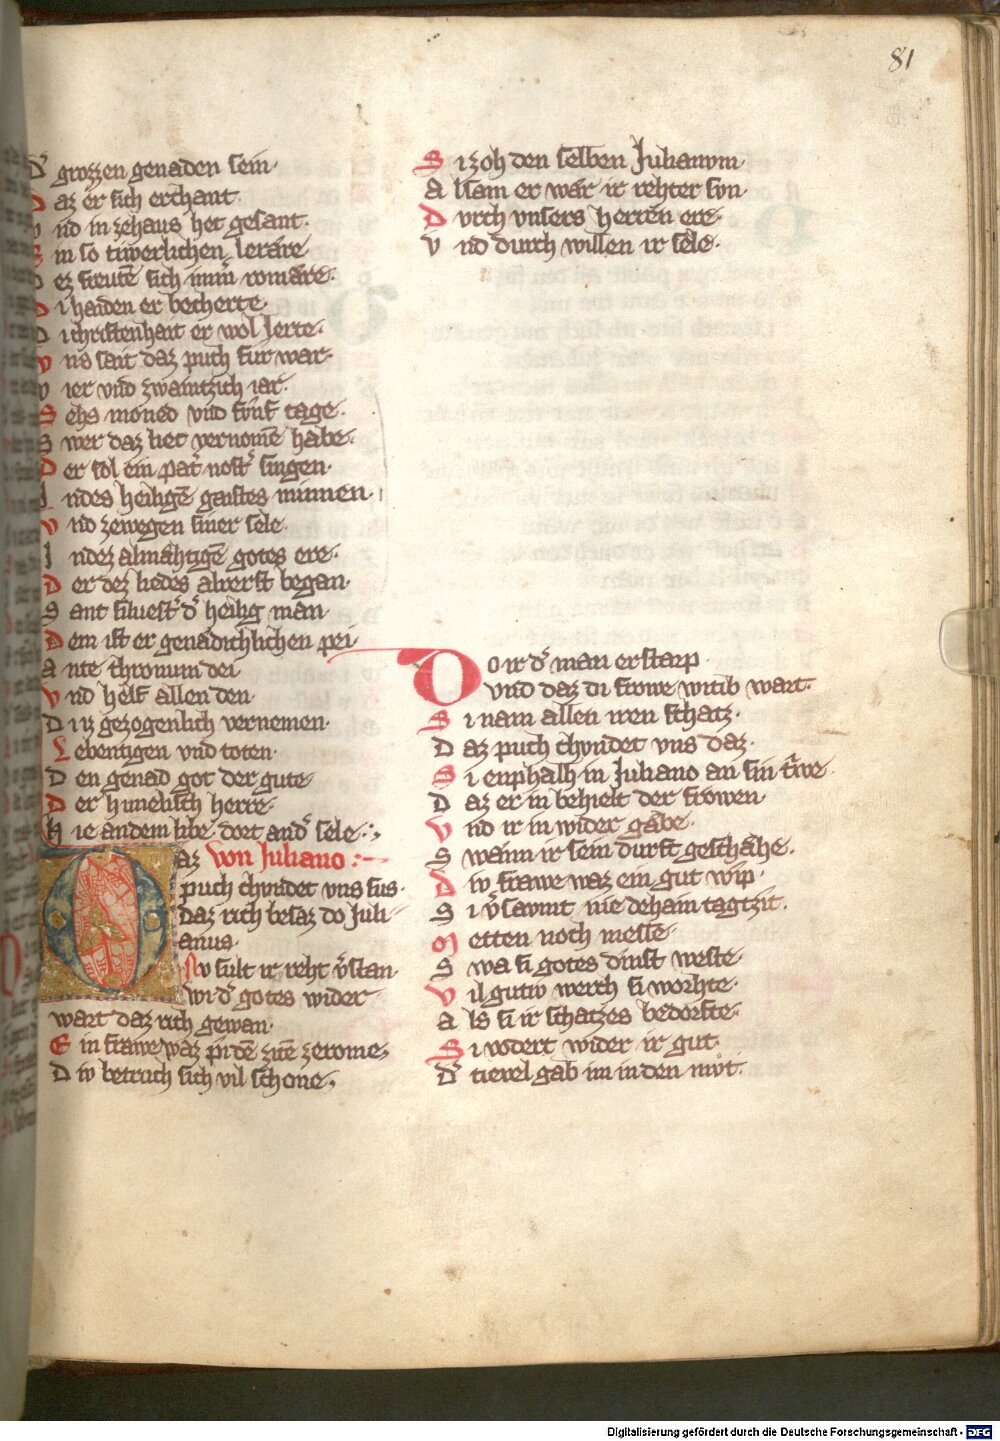 81
D' grozzen genaden sein·
D az er sich erchant·
v nd in zehaus het gesant·
E in so tiwerlichen lerare·
D ez frevte sich imm' romare·
D i haiden er becherte
D i christenhait er wol lerte·
V ns sait daz puch fur war·
V ier vnd zwaintzich iar·
S ehs moned vnd funf tage·
S wer daz liet vernomē habe·
D er sol ein pat' nost' singen·
I ndes heiligē gaistes minnen·
V nd zewegen siner sele·
I ndez almahtigē gotes ere·
D er dez liedes alrerst began·
S ant siluest' d' heilig man·
D em ist er genadichlichen pei
A nte thronum dei
V nd helf allen den·
D i iz gezogenlich vernemen·
L ebentigen vnd toten·
D en genad got der gute·
D er himelisch herre·
H ie andem libe dort and' sele·
Von Juliano
D az
puch chvndet vns sus·
daz rich besaz do Juli
anus·
Nv sult ir reht v'stan·
wi d' gotes wider
wart daz rich gewan·
E in frawe waz pi dē zitē zerome
D iv betruch sich vil schone
S i zoh den selben Julianvm·
A lsam er wär ir rehter svn·
D vrch vnsers herren ere·
V nd durch willen ir sele·
D o ir d' man erstarp·
vnd daz di frowe witib wart·
S i nam allen iren schatz·
D az puch chvndet vns daz·
S i enphalh in Juliano an sin triwe·
D az er in behielt der frowen·
V nd ir in wider gäbe·
S wann ir sein durft geschähe·
D iv frawe waz ein gut wip·
S i v'savmt nie dehain tagtzit·
M etten noch messe·
S wa si gotes dinst weste·
V il gutiv werch si worhte·
A ls si ir schatzes bedorfte·
S i vodert wider ir gut·
D' tievel gab im in den mvt·
Digitalisierung gefördert durch die Deutsche Forschungsgemeinschaft - DFG